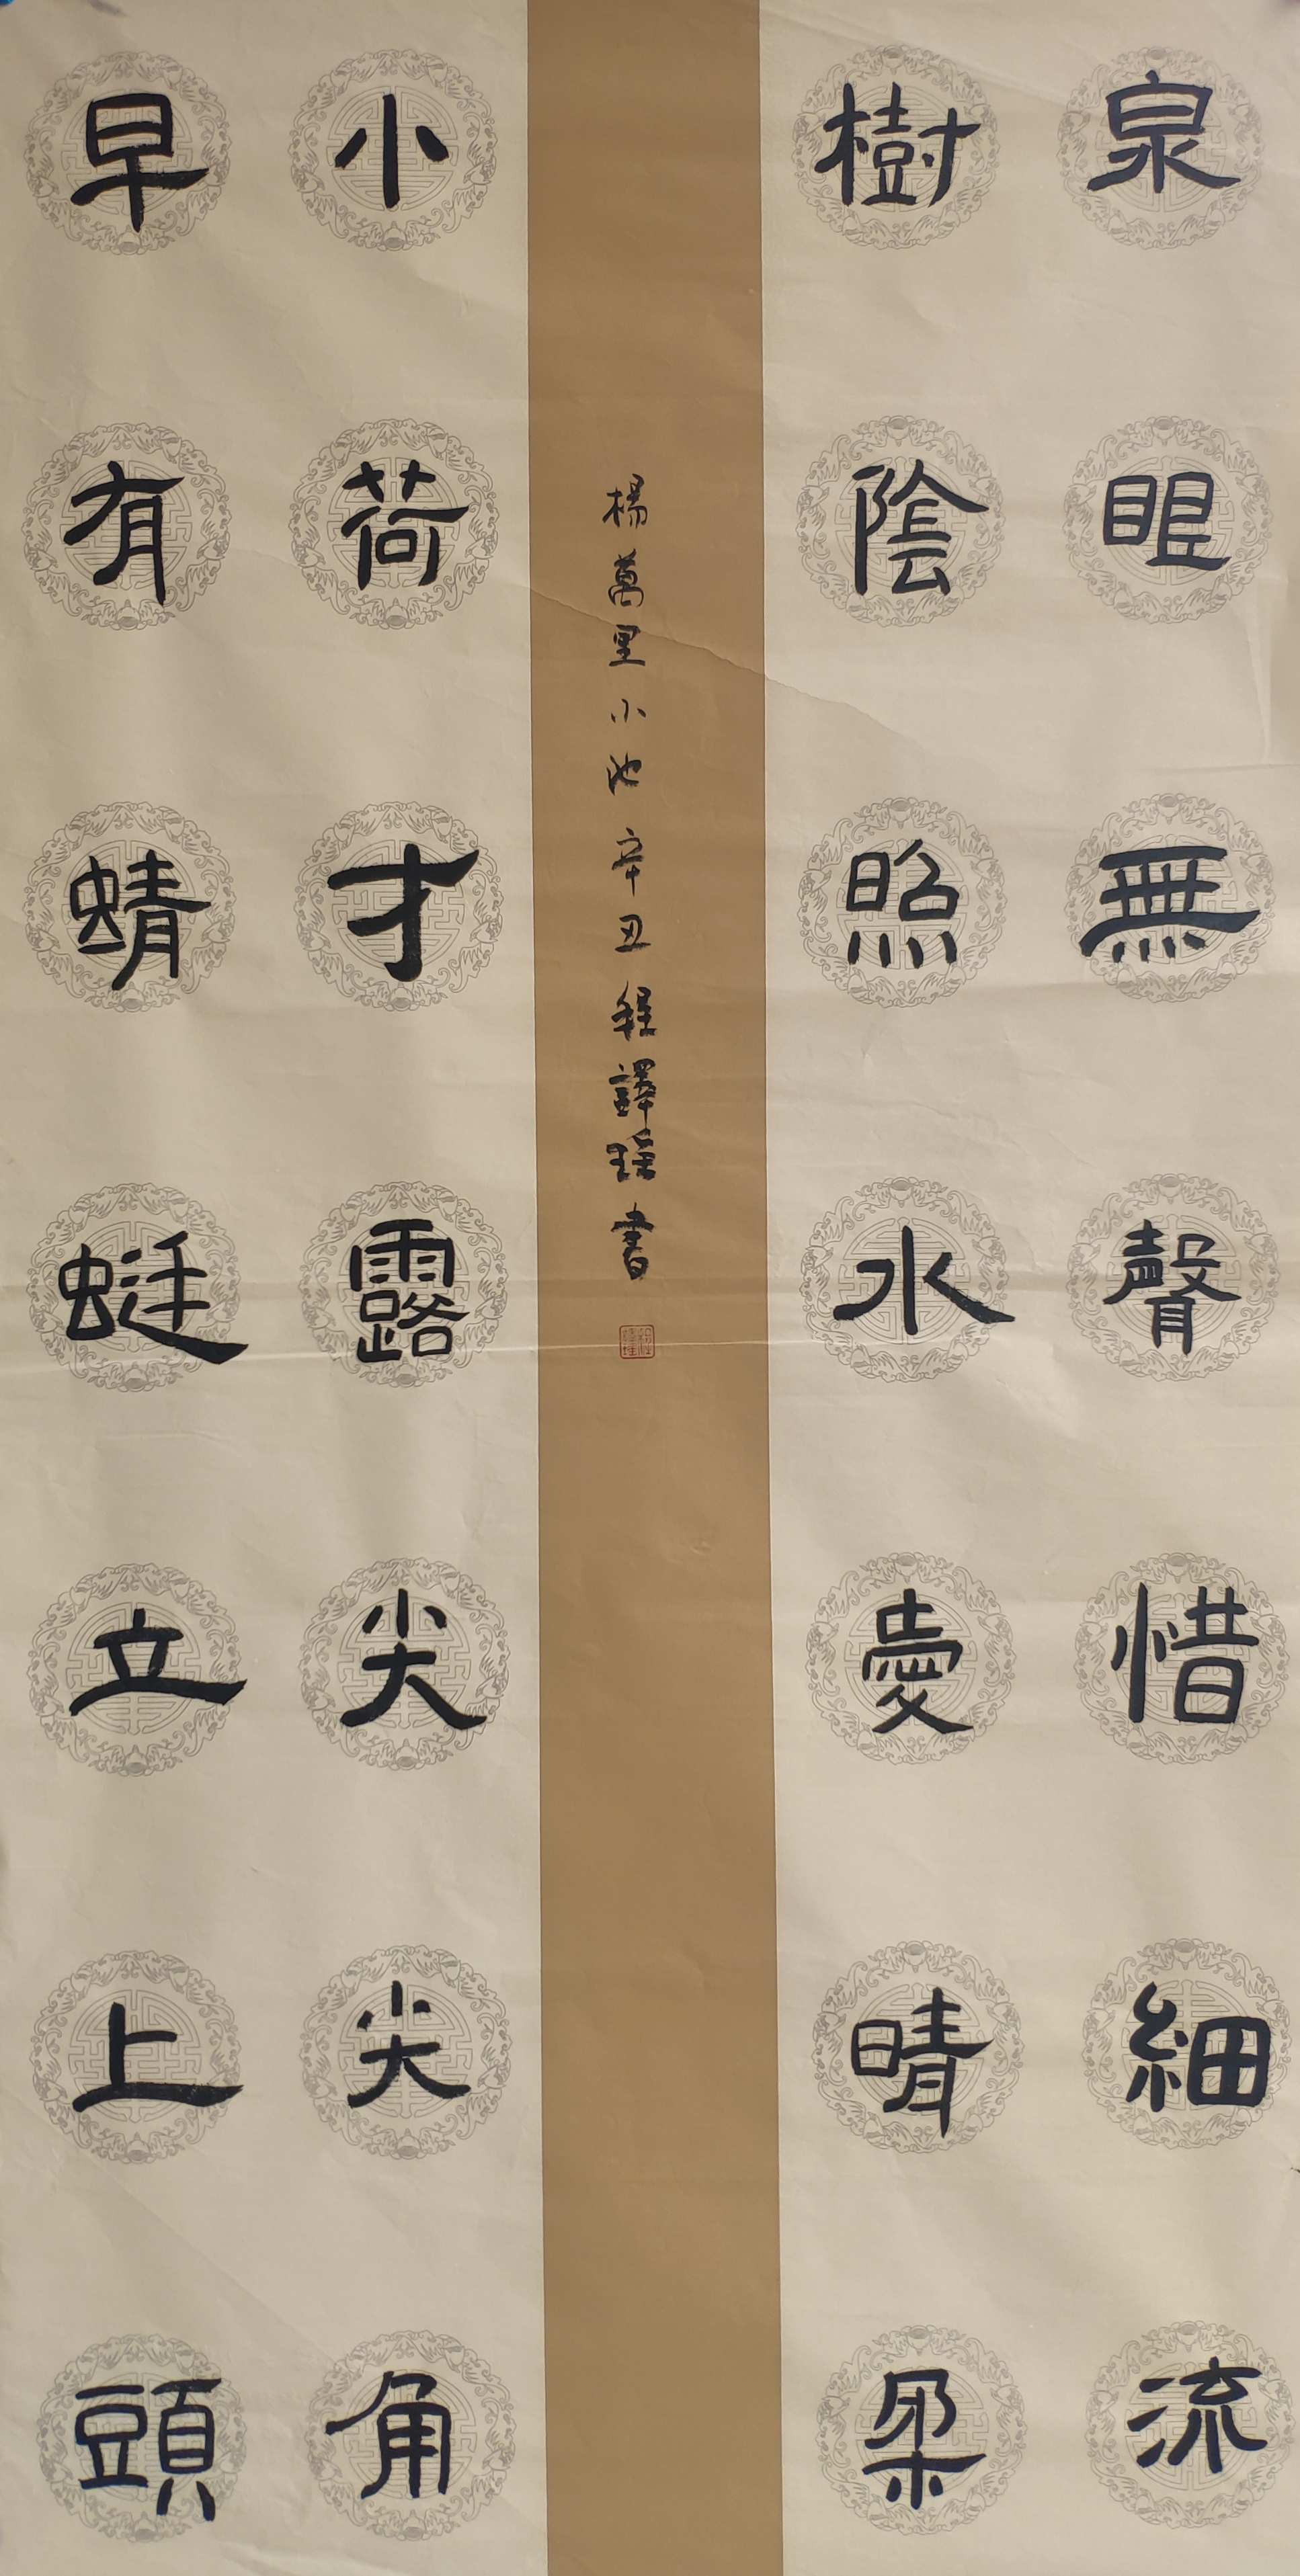 泉眼無聲惜細流
樹陰照水愛晴柔
小荷才露尖尖角
早有蜻蜓立上頭
楊萬里小池辛丑程譯瑶書